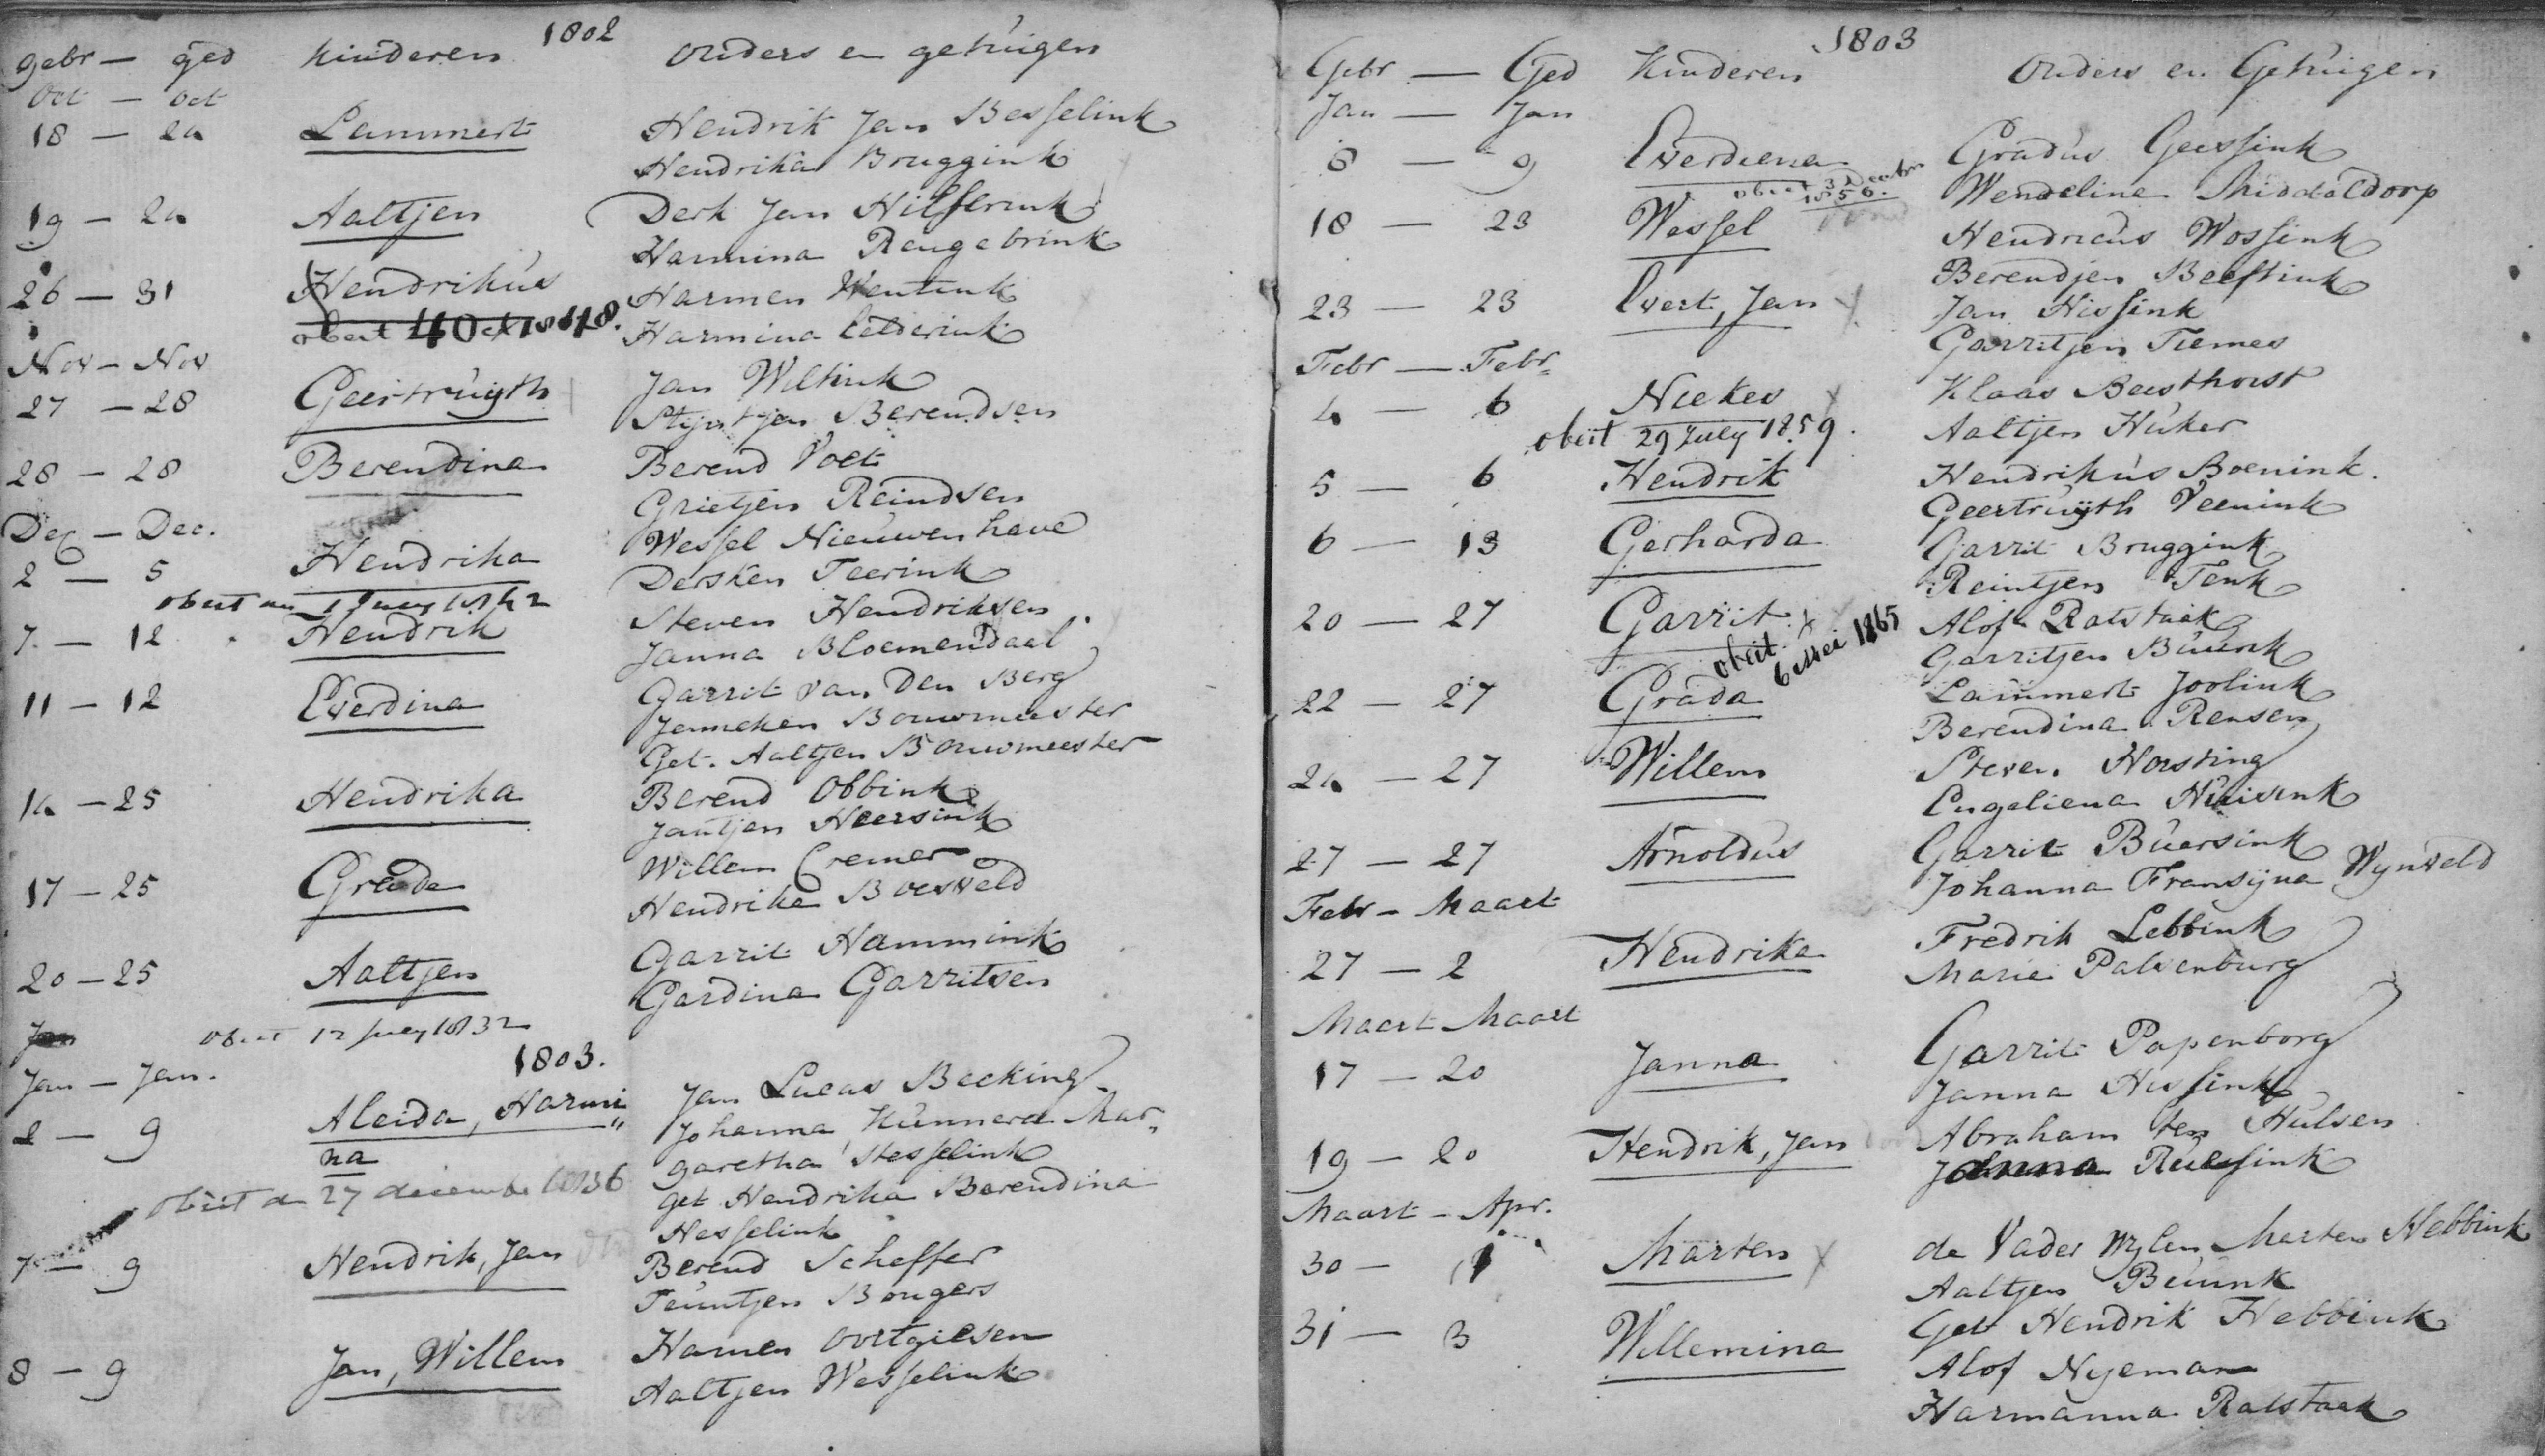 1802
gebr — ged kinderen ouders en getuigen
Oct — Oct
18 — 24 Lammert Hendrik Jan Besselink
Hendrika Bruggink
19 — 24 Aaltjen Derk Jan Hilferink
Harmina Rengebrink
26 — 31 Hendrikus Harmen Wentink
obiit 4 Oct 1848. Harmina Eelderink
Nov — Nov
27 — 28 Geertruijth Jan Wiltink
Stijntjen Berendsen
28 — 28 Berendina Berend Voet
Grietjen Reindsen
Dec — Dec.
2 — 5 Hendrika Wessel Nieuwenhave
Dersken Teerink
obiit
7 — 12 Hendrik Steven Hendriksen
Janna Bloemendaal
11 — 12 Everdina Garrit van den Berg
Jenneken Bouwmeester
Get. Aaltjen Bouwmeester
14 — 25 Hendrika Berend Obbink
Jantjen Heersink
17 — 25 Grada Willem Cremer
Hendrika Boesveld
20 — 25 Aaltjen Garrit Hammink
Gardina Garritsen
Jan obiit 12 July 1832
1803.
Jan — Jan.
2 — 9 Aleida, Harmi„ Jan Lucas Becking
na Johanna Hunnera Mar„
garetha Hesselink
obiit de 27 december 1836 get Hendrika Berendina
Hesselink
7 — 9 Hendrik, Jan Berend Scheffer
Teuntjen Bongers
8 — 9 Jan, Willem Harmen Oortgiesen
Aaltjen Wesselink
1803
Gebr — Ged Kinderen Ouders en Getuigen
Jan — Jan
8 — 9 Everdiena Gradus Geessink
obiit 3 Decbr 1856. Wendeline Middeldorp
18 — 23 Wessel Hendricus Wossink
Berendjen Beeftink
23 — 23 Evert, Jan Jan Hissink
Garritjen Tiemes
Febr — Febr
4 — 6 Niekes Klaas Beesthorst
obiit 29 July 1859. Aaltjen Huker
5 — 6 Hendrik Hendrikus Boenink.
Geertruijth Veenink
6 — 13 Gerharda Garrit Bruggink
Reintjen Tenk
20 — 27 Garrit Alof Ratstaak
obiit 6 Mei 1865 Garritjen Buunk
22 — 27 Grada Lammert Joolink
Berendina Rensen
24 — 27 Willem Steven Horsting
Engeliena Huisink
27 — 27 Arnoldus Garrit Buersink
Johanna Fransijna Wijnveld
Febr — Maart
27 — 2 Hendrika Fredrik Lebbink
Marie Palsenburg
Maart Maart
17 — 20 Janna Garrit Papenborg
Janna Hissink
19 — 20 Hendrik, Jan Abraham ten Hulsen
Janna Ruessink
Maart — Apr.
30 — 1 Marten de Vader wylen Marten Hebbink
Aaltjen Buunk
Get Hendrik Hebbink
31 — 3 Willemina Alof Nyeman
Harmanna Ratstaak